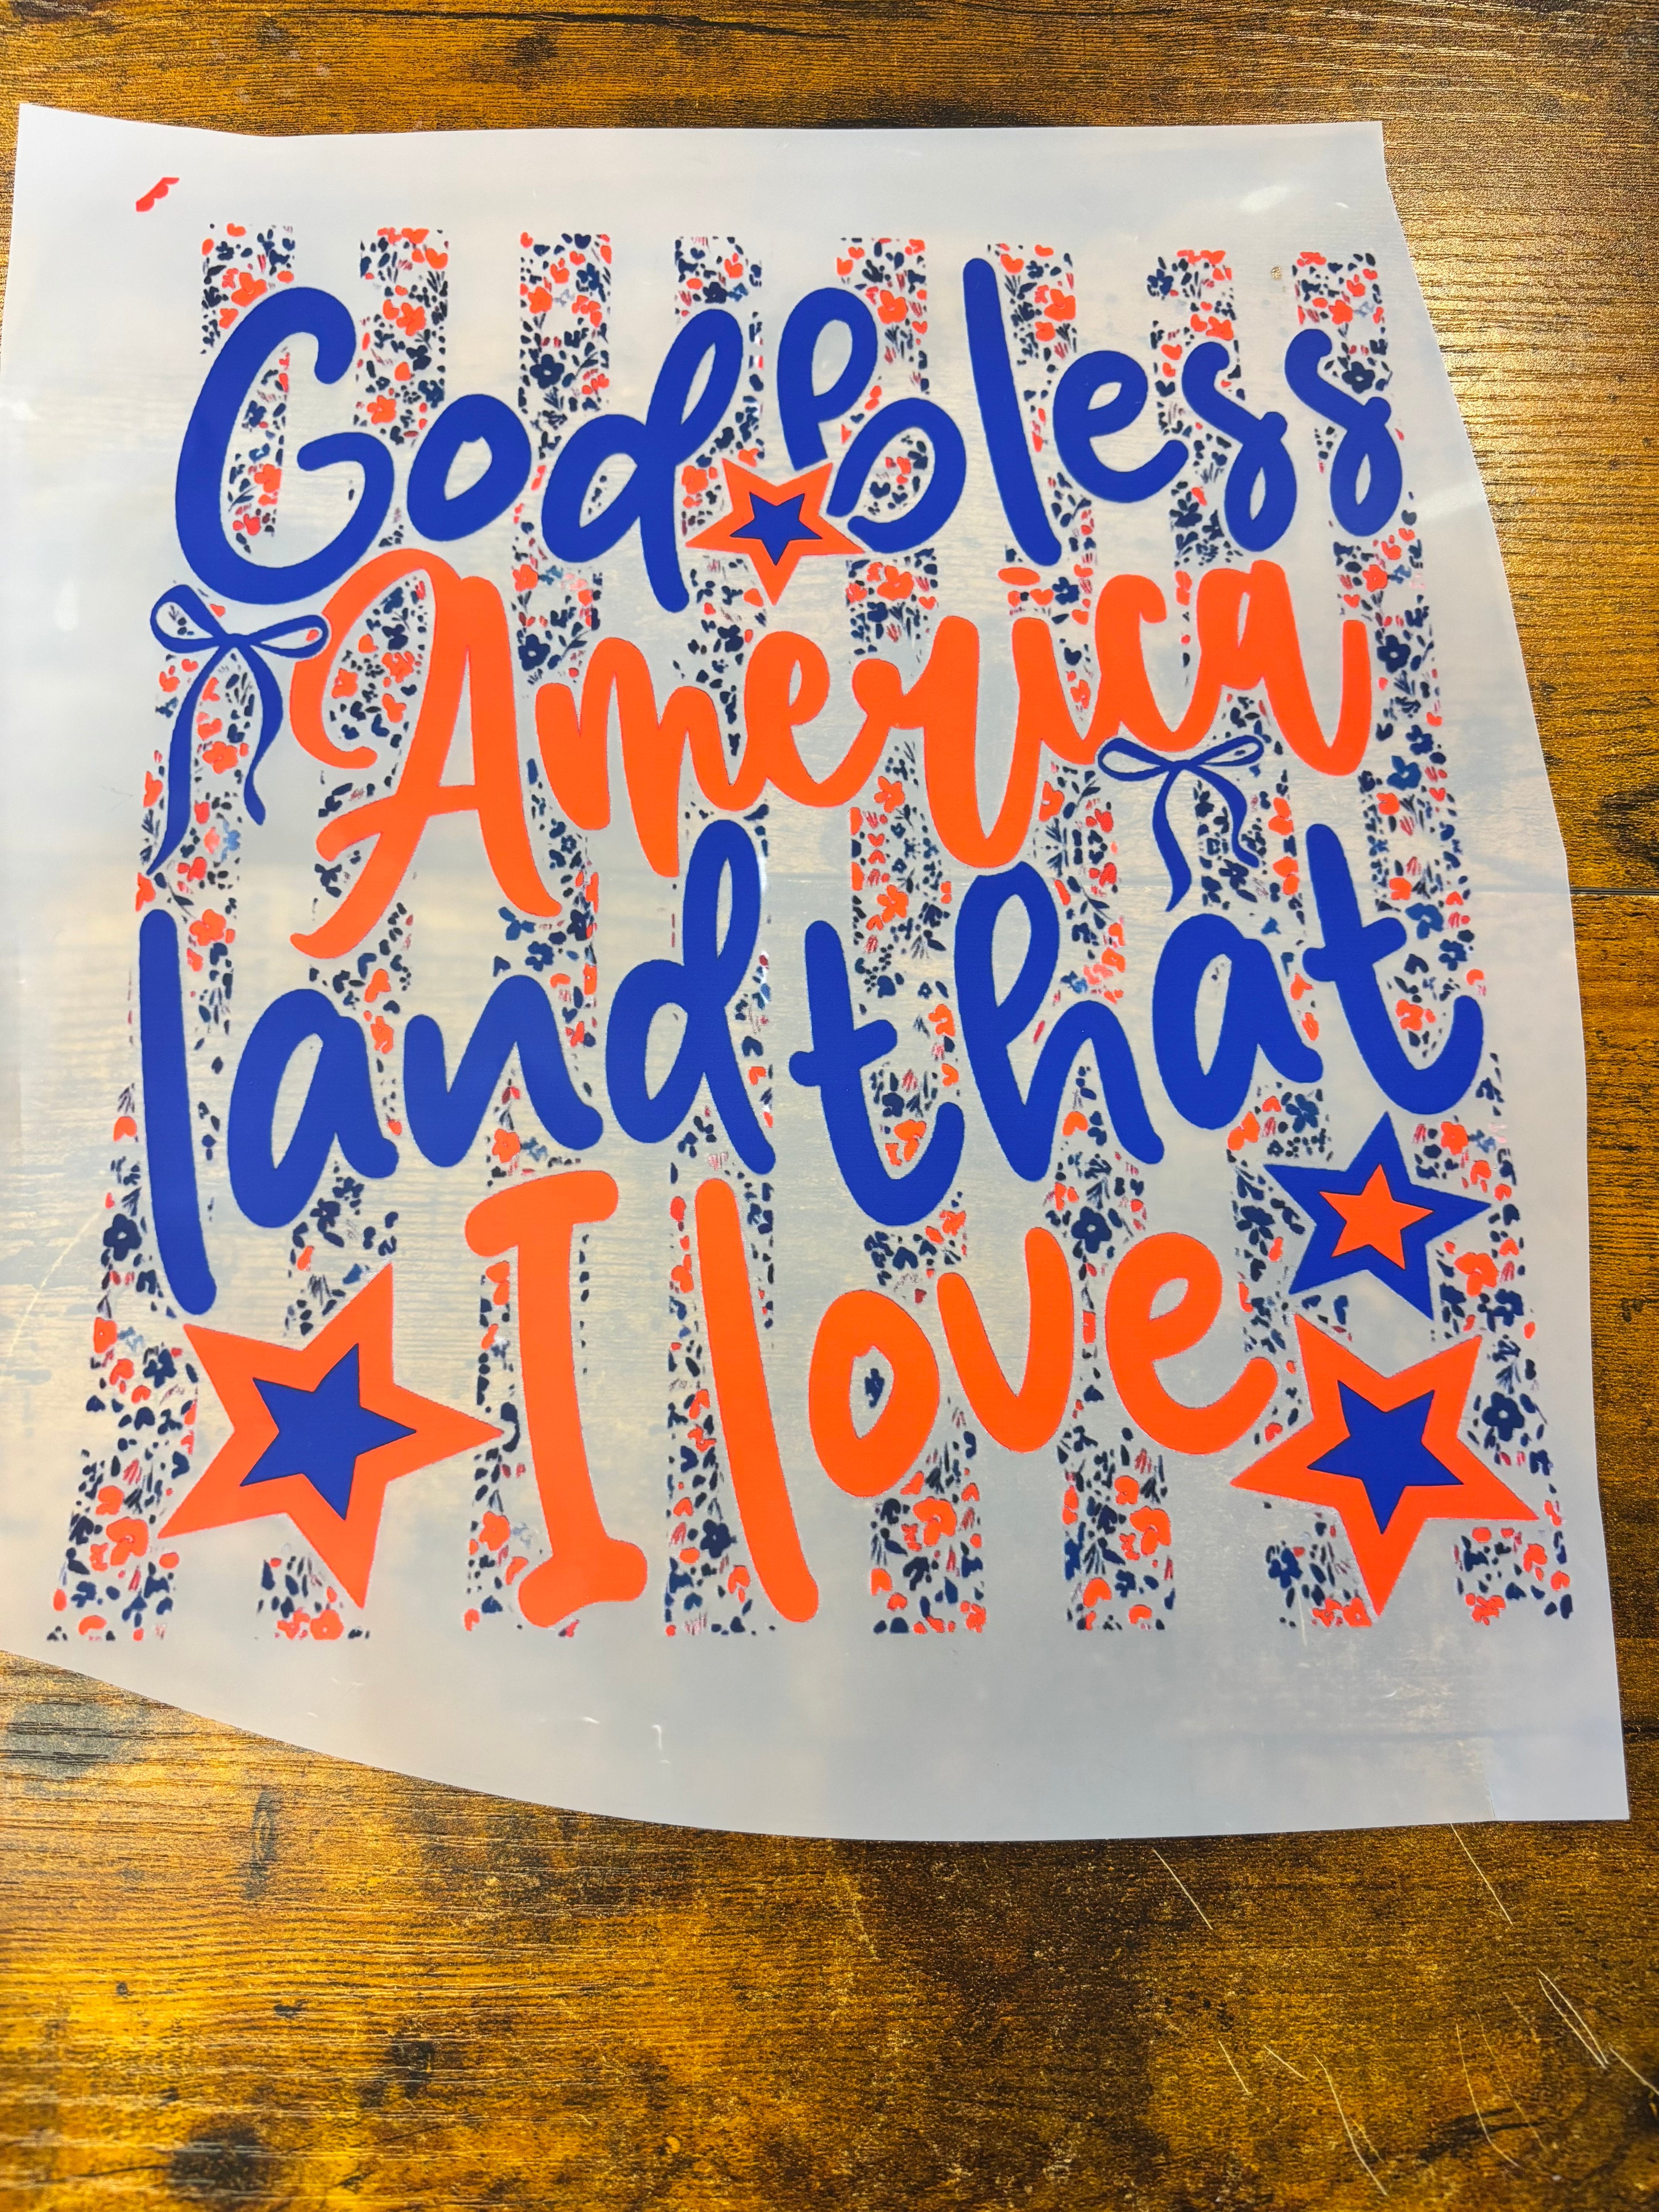 God bless
America
land that
I love